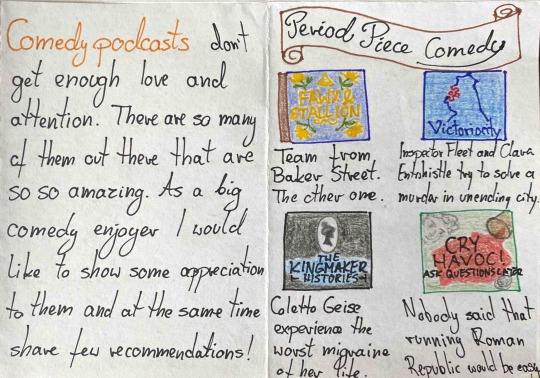 Comedy podcasts don't
get enough love and
attention. There are so many
of them out there that are
so so amazing. As a big
comedy enjoyer I would
like to show some appreciation
to them and at the same time
share few recommendations!
Period Piece Comedy
FAWX &
STALLION
Team from
Baker Street.
The other one.
Victoriocity
Inspector Fleet and Clara
Entwhistle try to solve a
murder in unending city.
THE
KINGMAKER
HISTORIES
Colette Geise
experience the
worst migraine
of her life.
CRY
HAVOC!
ASK QUESTIONS LATER
Nobody said that
running Roman
Republic would be easy